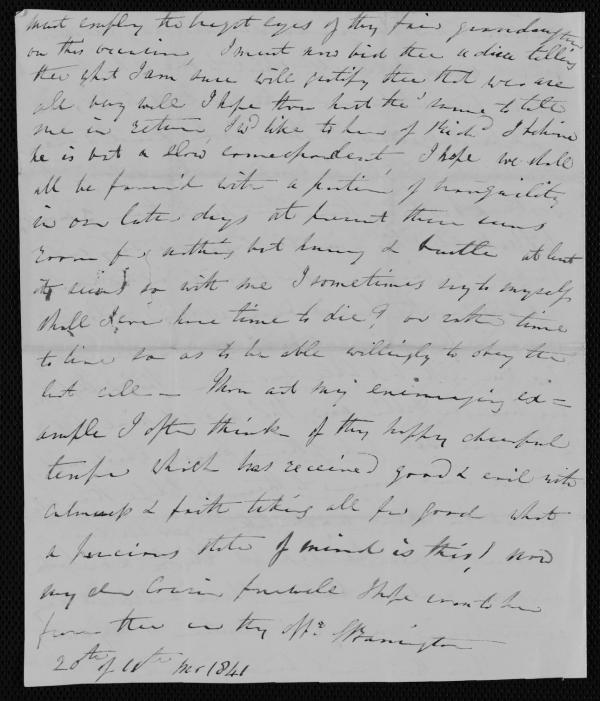 must employ the bright eyes of thy fair granddaughters
on this occasion, I must now bid thee adieu telling
thee what I am sure will gratify thee that we are
all very well I hope thou hast the same to tell
me in return, I'd like to hear of Rich^d I believe
he is but a slow correspondent, I hope we shall
all be favour'd with a portion of tranquility
in our latter days at present there seems
room for nothing but hurry & bustle at least
it seems so with me I sometimes say to myself
shall I ever have time to die? or rather time
to live so as to be able willingly to obey the
last call – Thou art my encouraging ex=
ample I often think of thy happy cheerful
temper which has received good & evil with
calmness & faith taking all for good what
a precious state of mind is this! now
my dear Cousin farewell I hope soon to hear
from thee in thy aff^te
20th of 11th mo 1841